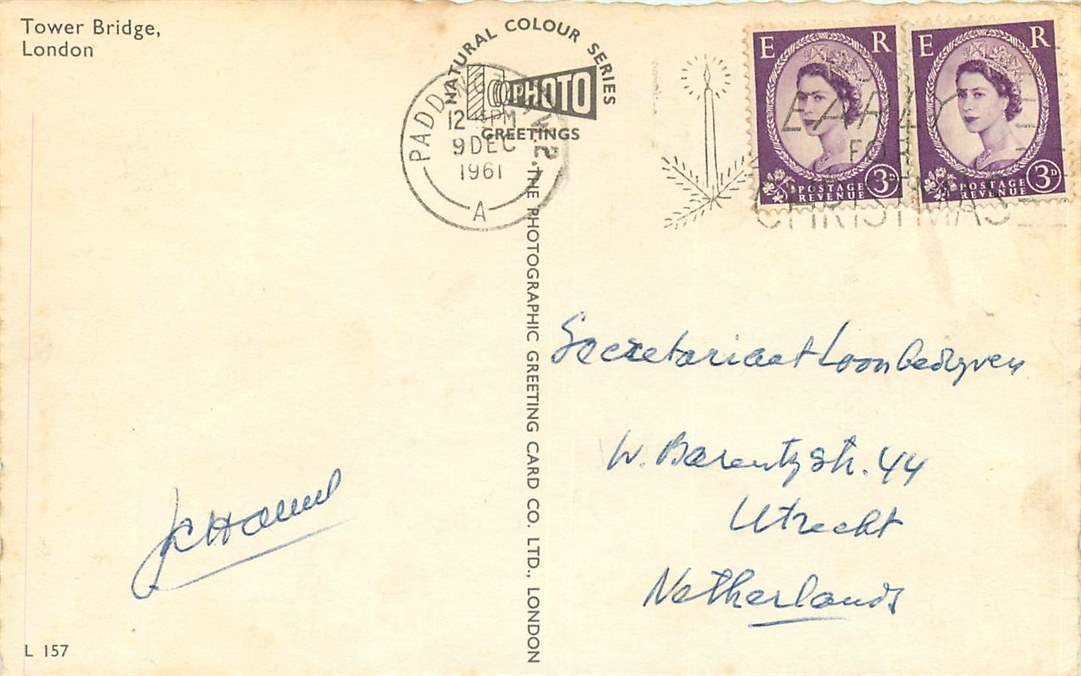 Tower Bridge,
London
NATURAL COLOUR SERIES
PHOTO
GREETINGS
PADD
W.2.
12
PM
9 DEC
1961
A
E R
POSTAGE
REVENUE
3D
E R
POSTAGE
REVENUE
3D
EARLY
FOR
CHRISTMAS
THE PHOTOGRAPHIC GREETING CARD CO. LTD., LONDON
Secretariaat Loonbedryven
W. Barentzstr. 44
Utrecht
Netherlands
L 157